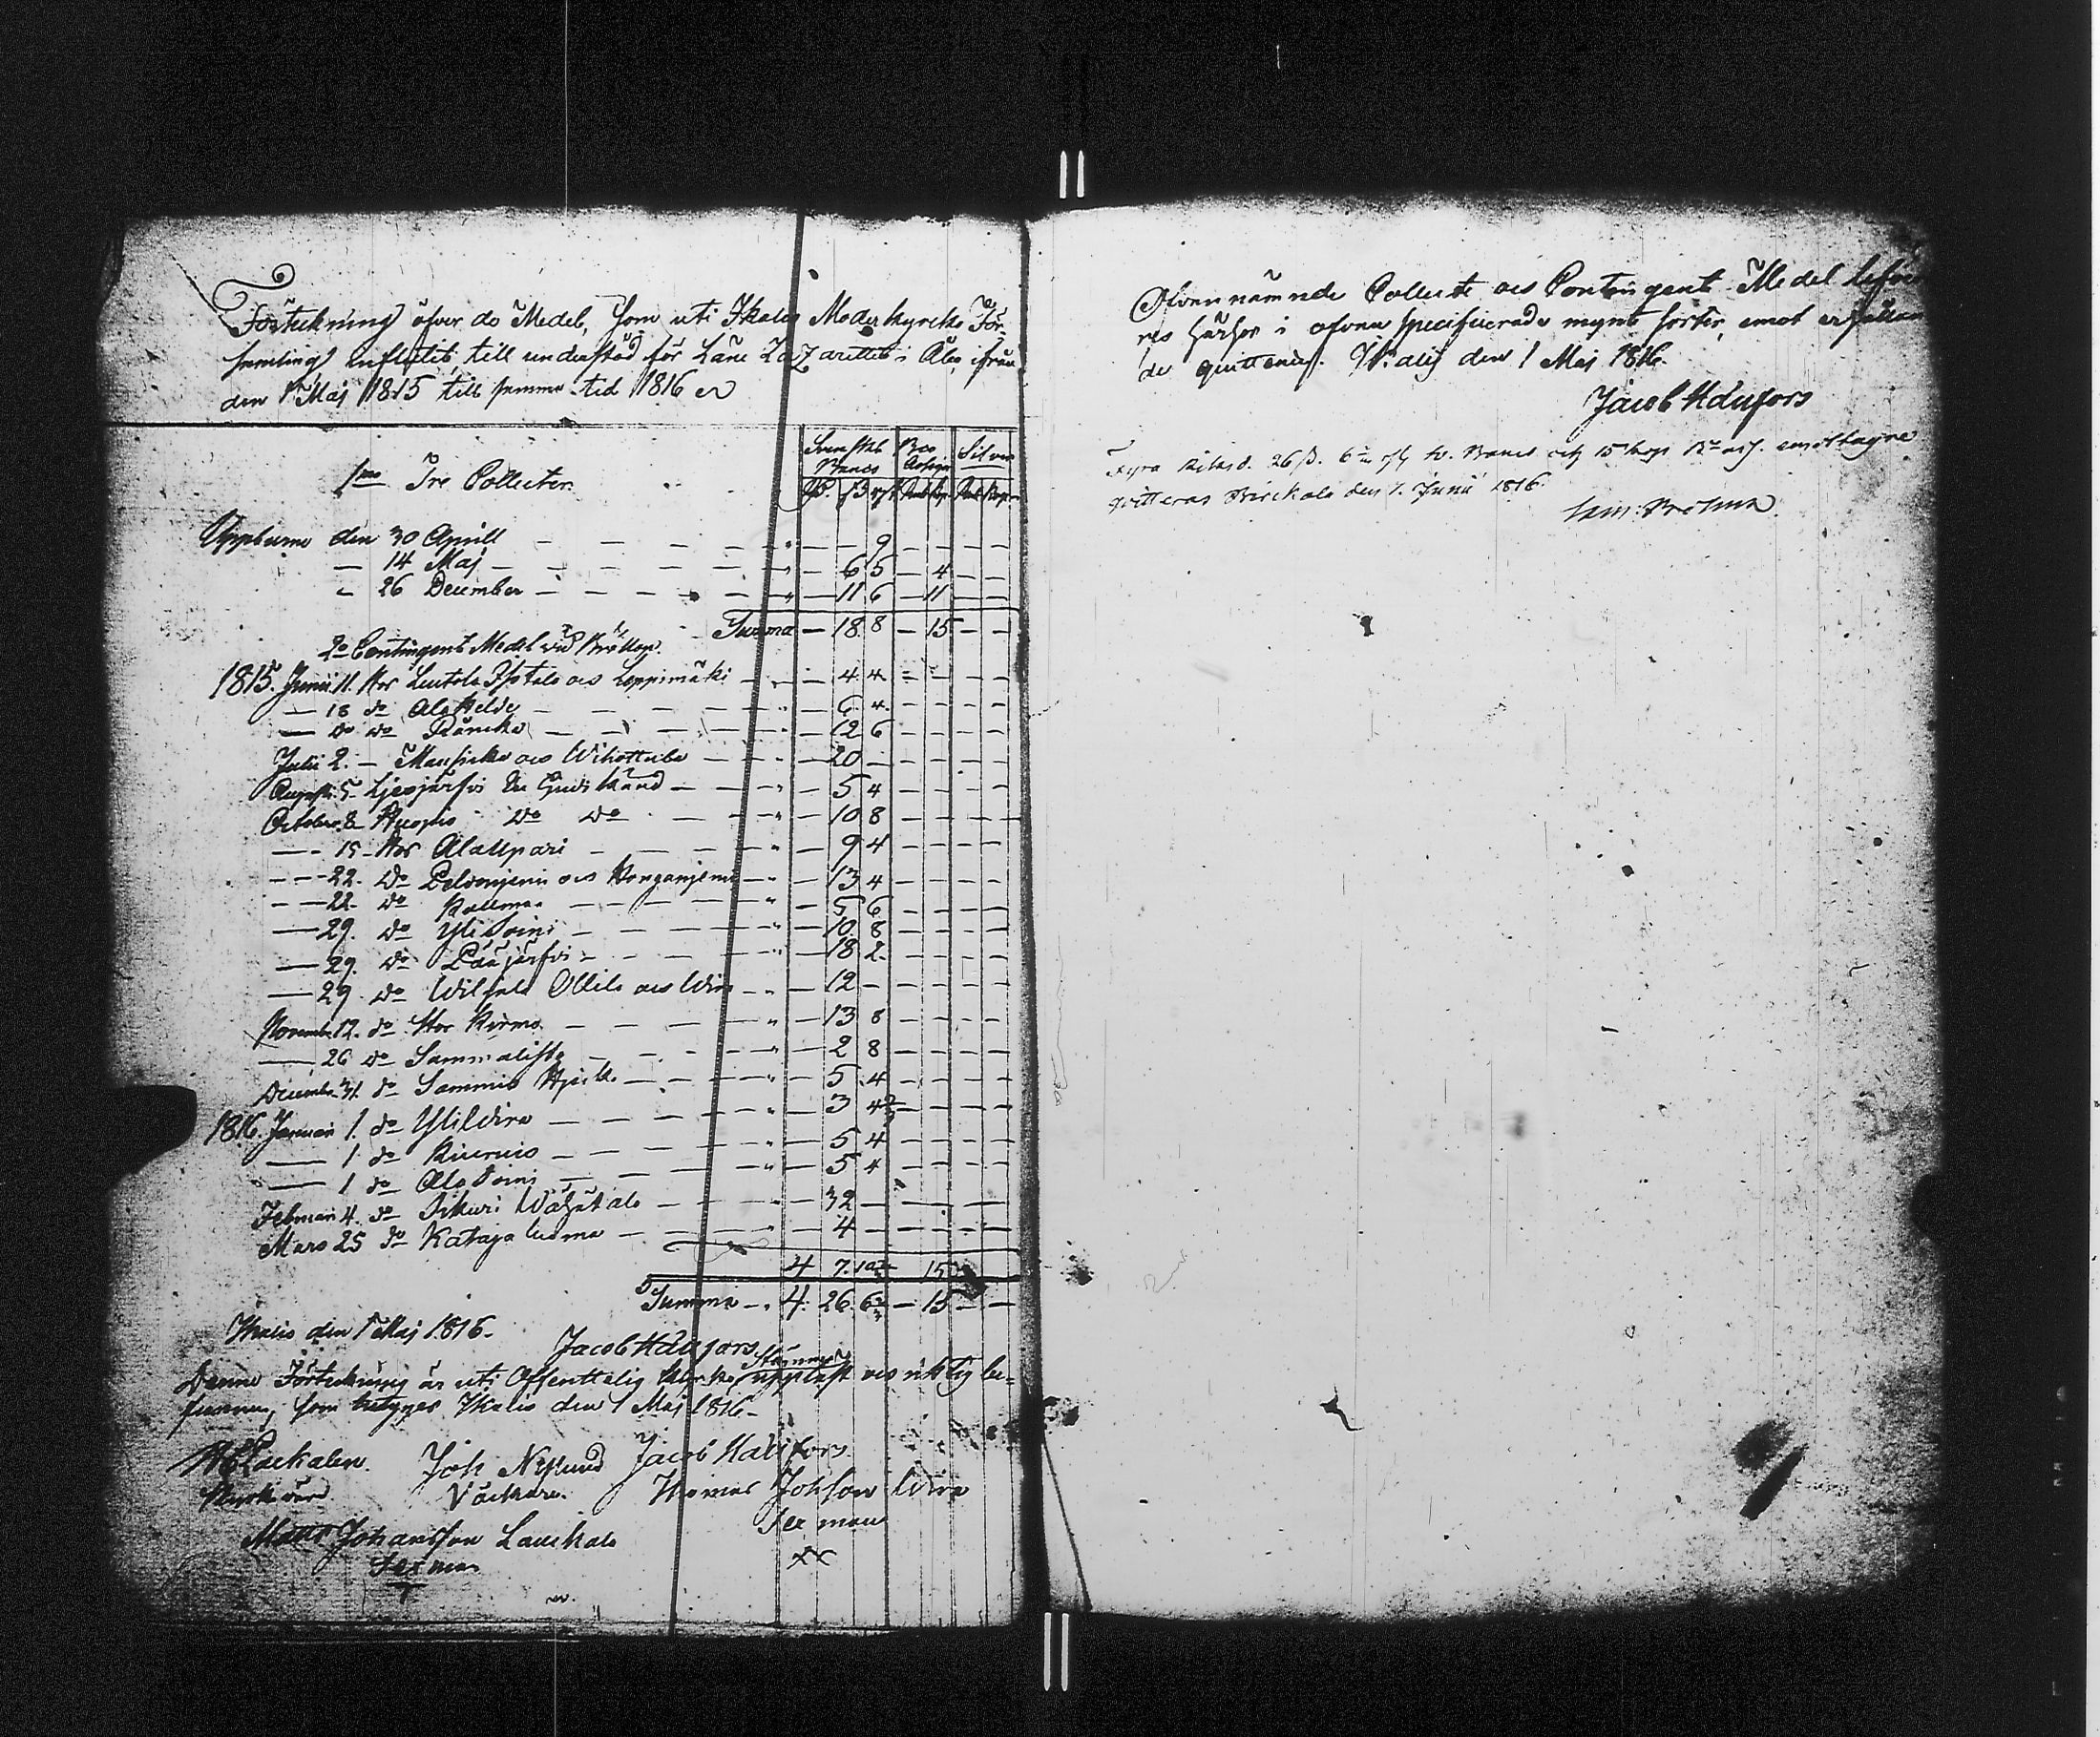 Förtekning öfver de Medel, som uti Ikalis Moderkyrcko För-
samling influtit, till understöd för Läne Lazarettet i Åbo, ifrån
den 1 Maj 1815 till samma tid 1816
Svenska Banco Bco Assign Silver
1mo Tre Collecter
Uppburne den 30 Aprill — — — 9 — — — —
— 14 Maj — — 6 5 — 4 — —
— 26 December — — 11 6 — 11 — —
Summa — 18 8 — 15 — —
2o Contingent Medel vid Bröllop
1815. Junii 11. Hos Leutola Isotalo och Leppimäki — 4 4 — — — —
— 18 do Ala Kelde — 6 4 — — — —
— do do Röncke — 12 6 — — — —
Julii 2. — Mansicka och Wihottula — 20 — — — — —
Augusti 5 — Ljesjärfvi — 5 4 — — — —
October 8 — Kuopio do do — 10 8 — — — —
— 15 — Hos Ala Upari — 9 4 — — — —
— 22. do Peldonjemi och Honganjemi — 13 4 — — — —
— 22. do Kallma — 5 6 — — — —
— 29. do Yli Soini — 10 8 — — — —
— 29. do Pääjärfvi — 18 2 — — — —
— 29 do Ollila och Wira — 12 — — — — —
November 12. do Stor Kirmo — 13 8 — — — —
— 26 do Sammalisto — 2 8 — — — —
December 31. do Sammi — 5 4 — — — —
1816. Januari 1. do Yli Wira — 3 4 — — — —
— 1. do — 5 4 — — — —
— 1 do Ala Soini — 5 4 — — — —
Februari 4. do Tikuri Wähätalo — 32 — — — — —
Mars 25 do Kataja Luoma — 4 — — — — —
4 7. 10 15
Summa — 4. 26. 6 — 15 — —
Ikalis den 1 Maj 1816.
Jacob Hadufors
Denna Förtekning är uti Offentelig Kyrko Stämma uppläst och riktig be-
funnen, som betyges Ikalis den 1 Maj 1816 —
Packalen Joh Nylund Jacob Hadufors
Kyrkvärd Väckare. Thomas Johsson Wira
Sexman
Mats Johansson Lauckalo
Sexman
xx
Ofvannämnde Collecte och Contingent Medel lefve-
res härhos i ofvan specificerade mynt sorter, emot erhållan-
de quittence. Ikalis den 1 Maj 1816.
Jacob Hadufors
Fyra Riksd. 26 ß. 6 rst sv. Banco och 15 kop Bco ass. emottagne
quitteras Birckala den 1. Junii 1816.